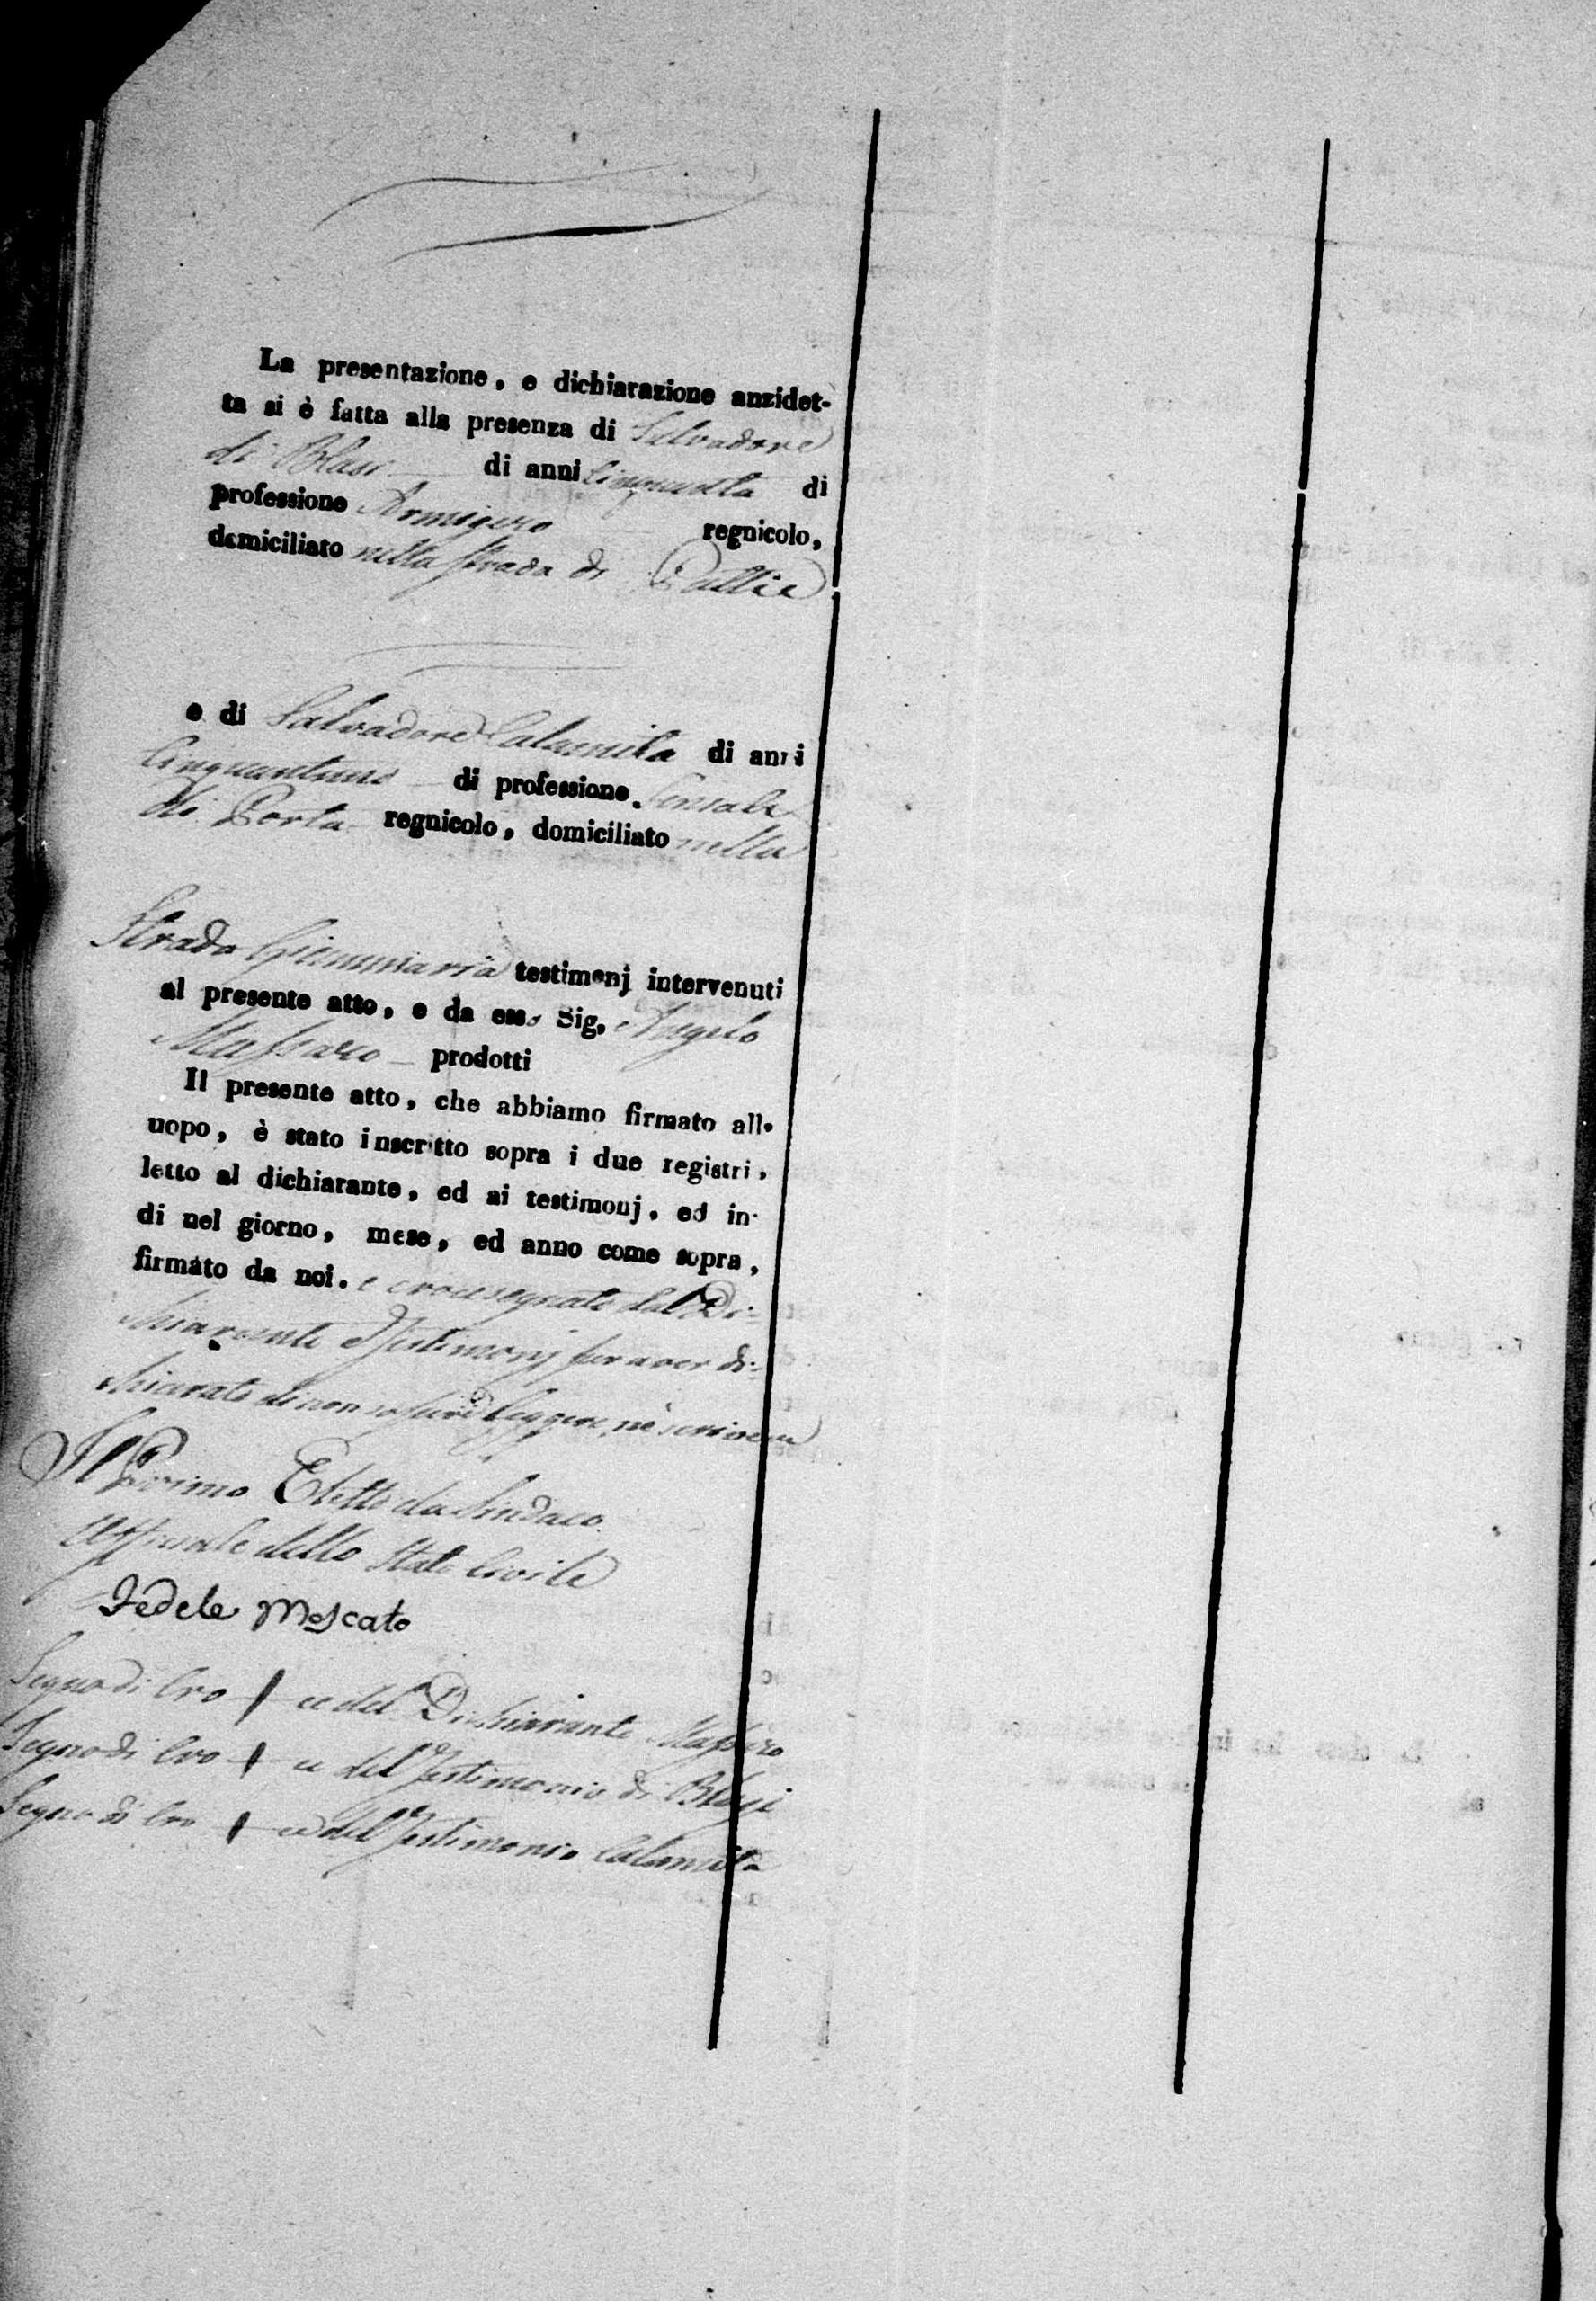 La presentazione, e dichiarazione anzidet-
ta si è fatta alla presenza di Salvadore
di Blasi di anni Cinquanta di
professione Armigero regnicolo,
domiciliato nella strada di
e di Salvadore Calamita di anni
Cinquantuno di professione Sensale
di Porta regnicolo, domiciliato nella
Strada testimonj intervenuti
al presente atto, e da esso Sig. Angelo
Massaro prodotti
Il presente atto, che abbiamo firmato all'
uopo, è stato inscritto sopra i due registri,
letto al dichiarante, ed ai testimonj, ed in-
di nel giorno, mese, ed anno come sopra,
firmato da noi. e crocesegnato dal Di-
chiarante e Testimonj per aver di-
chiarato di non sapere leggere, nè scrivere
Il Primo Eletto da Sindaco
Uffiziale dello Stato Civile
Fedele Moscato
Segno di Cro + ce del Dichiarante Massaro
Segno di Cro + ce del Testimonio di Blasi
Segno di Cro + ce del Testimonio Calamita